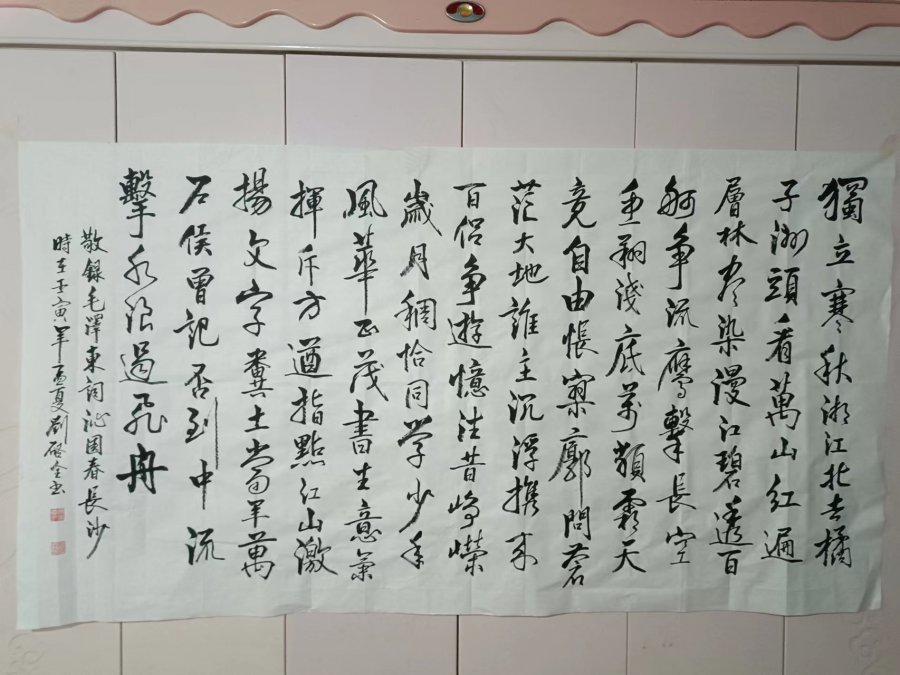 獨立寒秋湘江北去橘
子洲頭看萬山紅遍
層林盡染漫江碧透百
舸争流鷹擊長空
魚翔淺底萬類霜天
竞自由悵寥廓問蒼
茫大地誰主沉浮携来
百侣争遊憶往昔崢嶸
歲月稠恰同学少年
風華正茂書生意氣
揮斥方遒指點江山激
揚文字糞土當年萬
户侯曾記否到中流
擊水浪遏飛舟
敬錄毛澤東詞沁園春長沙
時在壬寅年孟夏劉啓全書